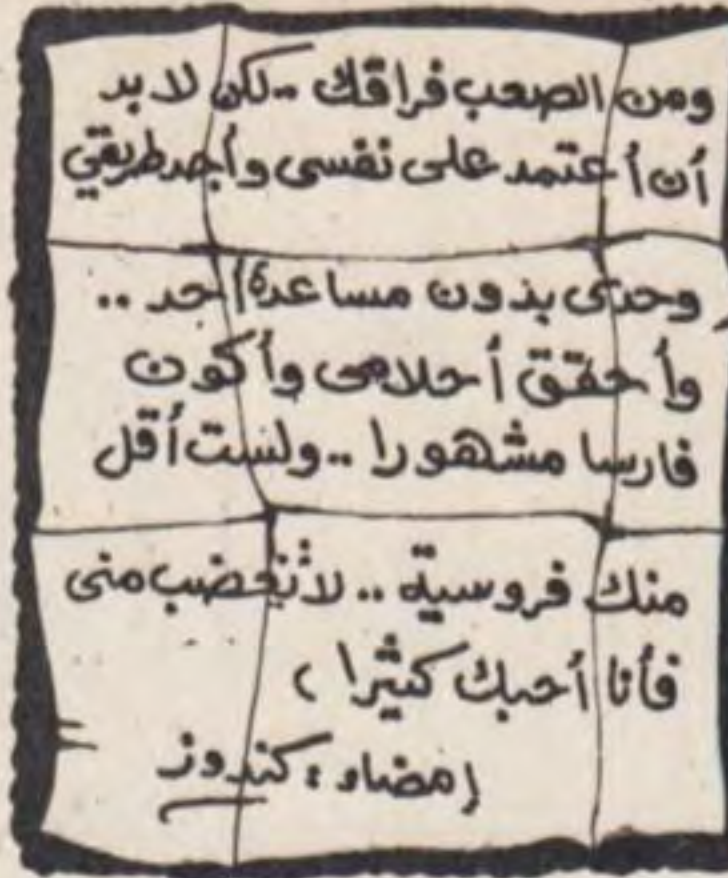 ومن الصعب فراقك .. لكن لا بد
أن أعتمد على نفسى وأجد طريقي
وحدى بدون مساعدة أحد ..
وأحقق أحلامى وأكون
فارسا مشهورا .. ولست أقل
منك فروسية .. لا تغضب منى
فأنا أحبك كثيرا ،
إمضاء : كندوز